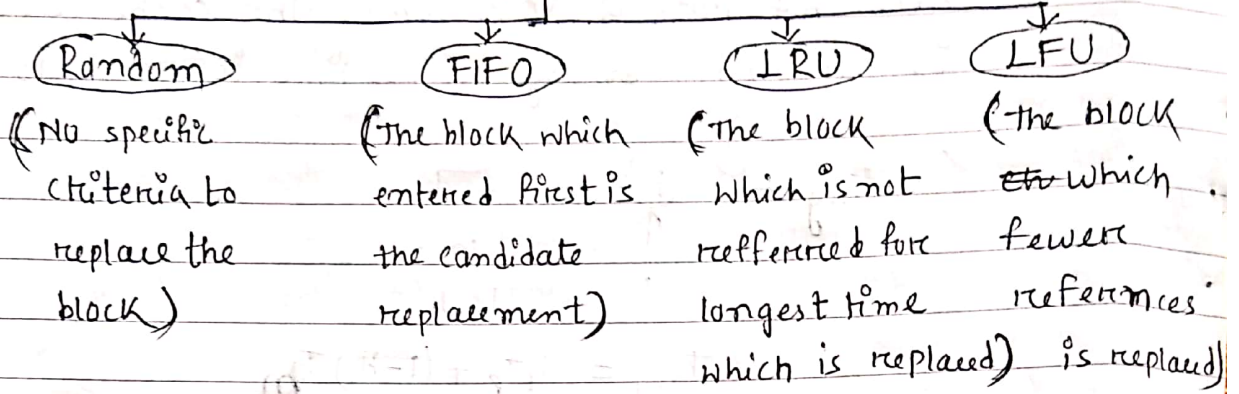 Random
(No specific
criteria to
replace the
block)
FIFO
(The block which
entered first is
the candidate
replacement)
LRU
(The block
which is not
refferred for
longest time
which is replaced)
LFU
(the block
which
fewer
refernces
is replaced)